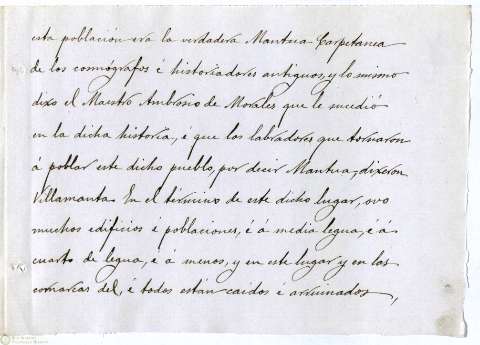 esta población era la verdadera Mantua Carpetanea
de los cosmógrafos é historiadores antiguos, y lo mesmo
dixo el Maestro Ambrosio de Morales que le sucedió
en la dicha historia, é que los labradores que tornaron
á poblar este dicho pueblo, por decir Mantua, dixeron
Villamanta. En el término de este dicho lugar, ovo
muchos edificios é poblaciones, é á media legua, é á
cuarto de legua, é á menos, y en este lugar y en las
comarcas del, é todos están caidos é arruinados,